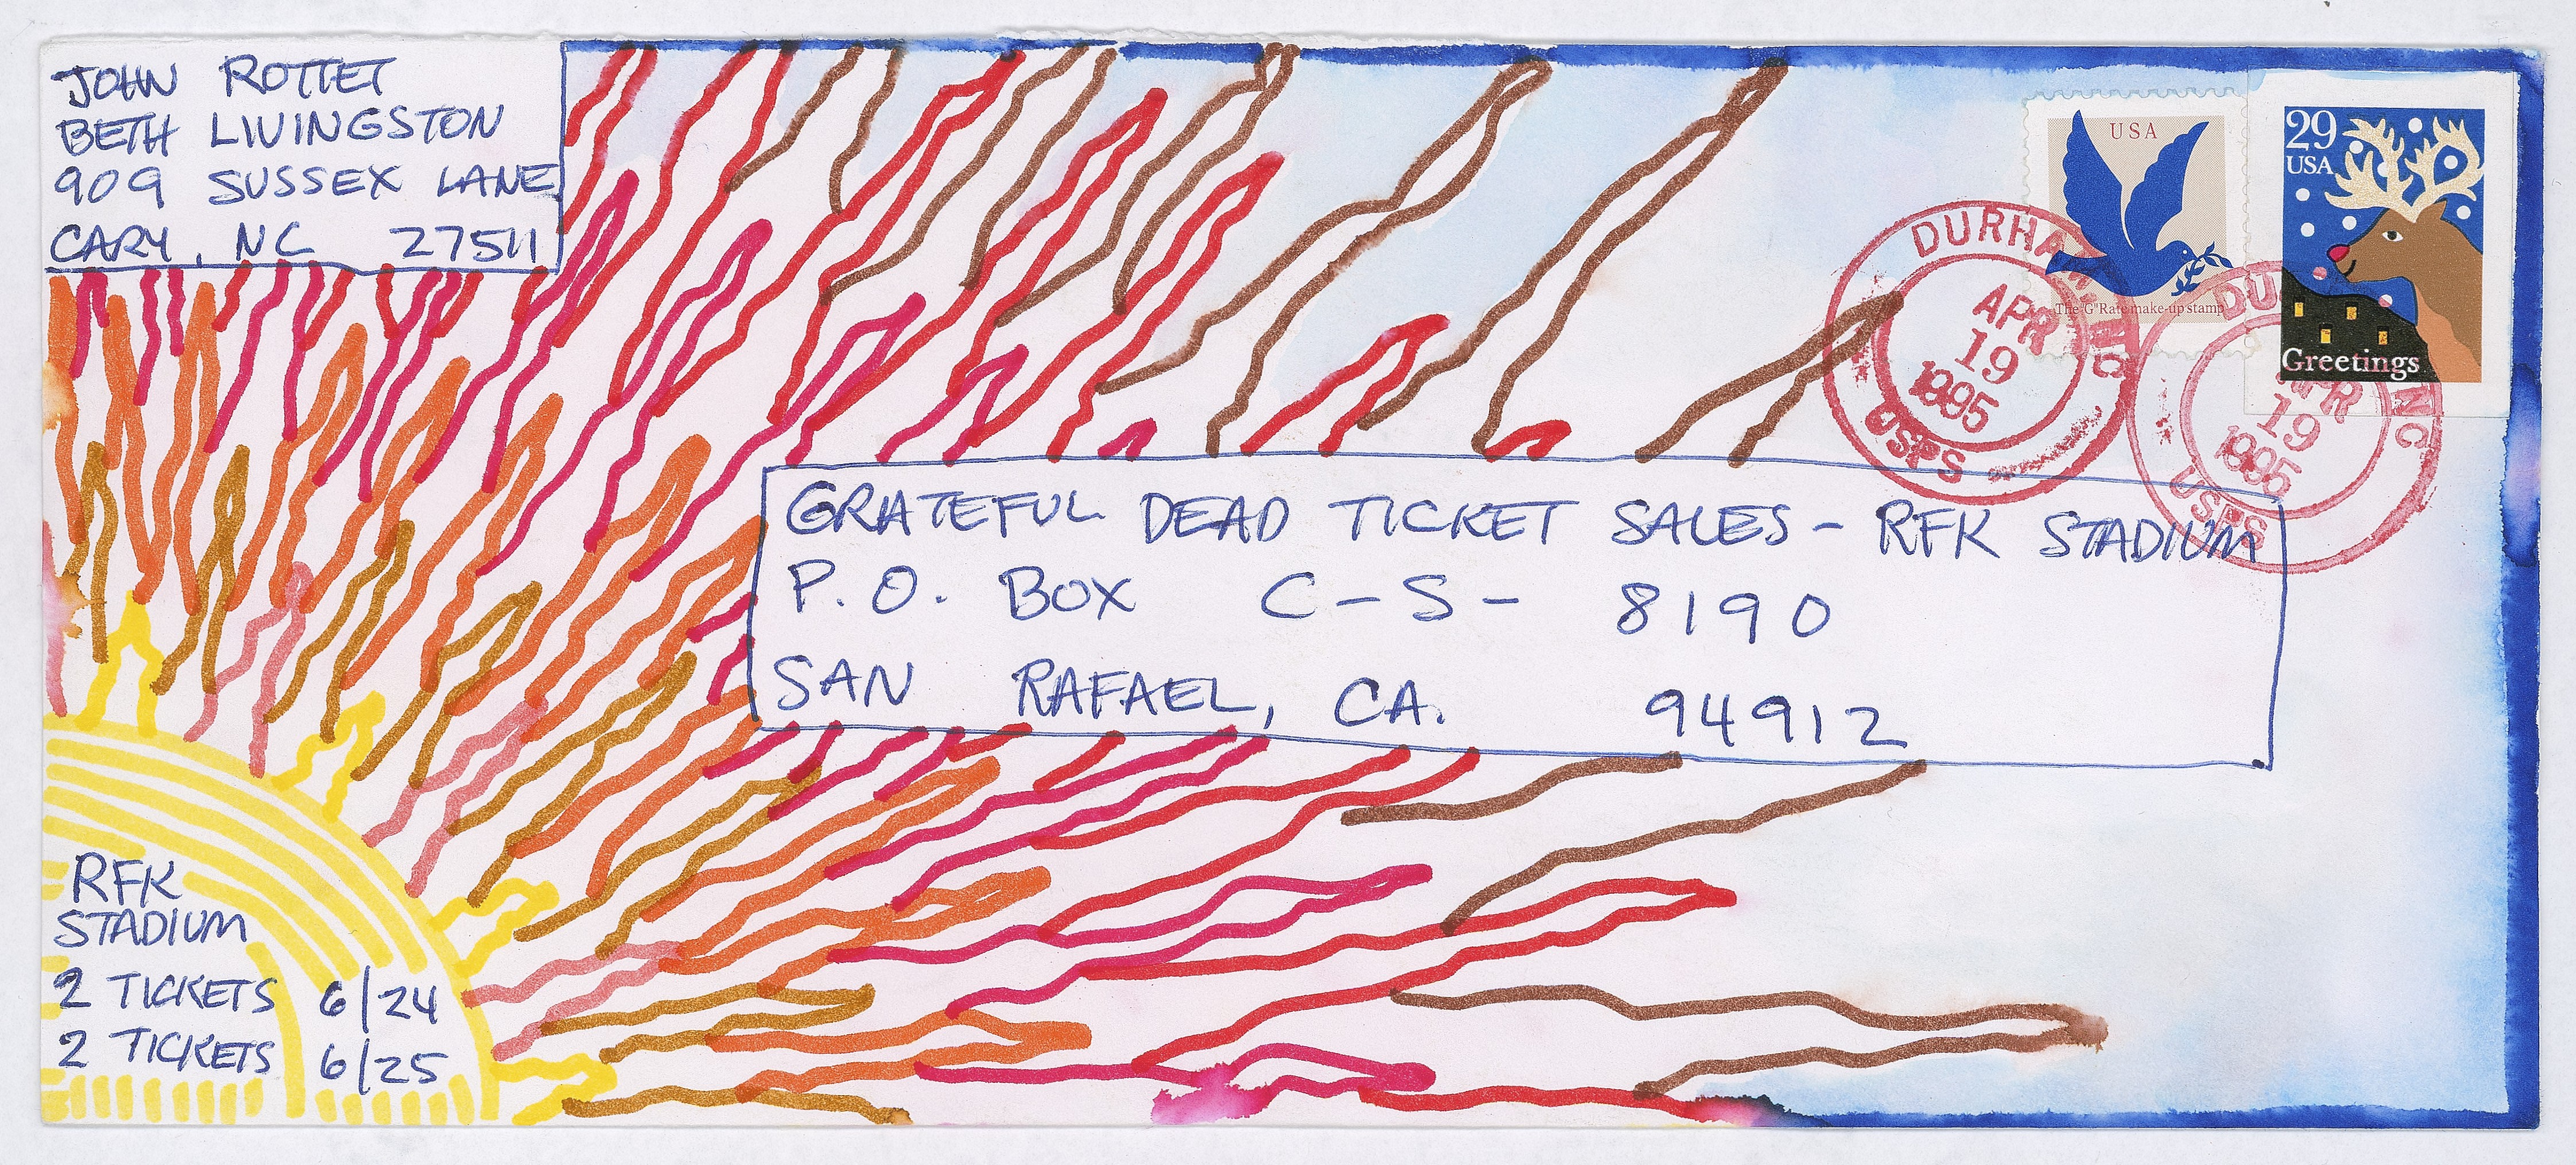 JOHN ROTTET
BETH LIVINGSTON
909 SUSSEX LANE
CARY, NC 27511
USA
The "G" Rate make-up stamp
29
USA
Greetings
DURHAM, NC
APR
19
1995
USPS
DU NC
APR
19
1995
USPS
GRATEFUL DEAD TICKET SALES - RFK STADIUM
P.O. BOX C-S- 8190
SAN RAFAEL, CA. 94912
RFK
STADIUM
2 TICKETS 6/24
2 TICKETS 6/25